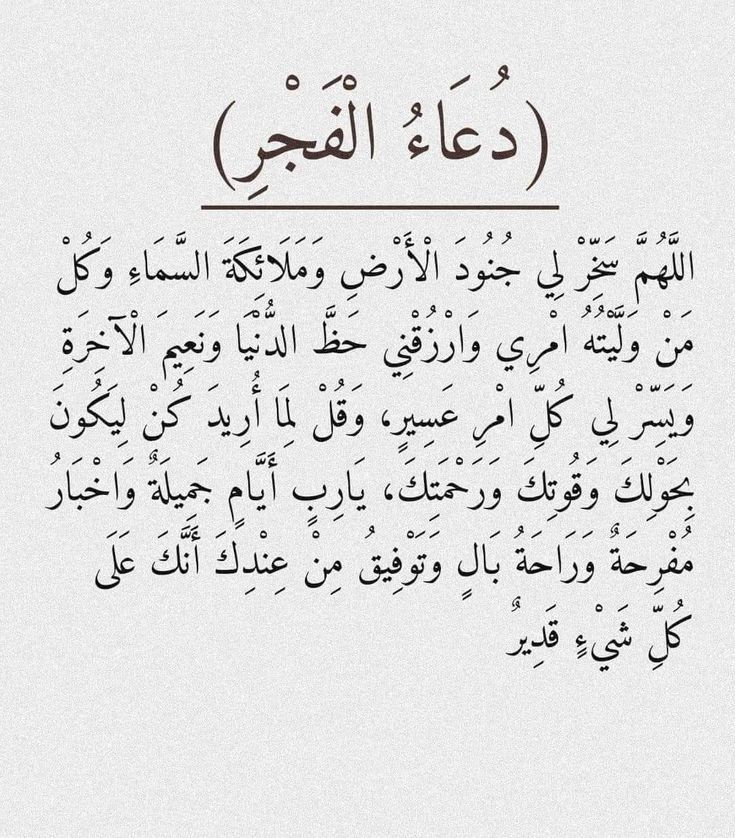 (دُعَاءُ الْفَجْرِ)
اللَّهُمَّ سَخِّرْ لِي جُنُودَ الْأَرْضِ وَمَلَائِكَةَ السَّمَاءِ وَكُلْ
مَنْ وَلَّيْتُهُ امْرِي وَارْزُقْنِي حَظَّ الدُّنْيَا وَنَعِيمَ الْآخِرَةِ
وَيَسِّرْ لِي كُلِّ امْرِ عَسِيرٍ، وَقُلْ لِمَا أُرِيدَ كُنْ لِيَكُونَ
بِحَوْلِكَ وَقُوتِكَ وَرَحْمَتِكَ، يَارِبٍ أَيَّامٍ جَمِيلَةٌ وَاخْبَارُ
مُفْرِحَةٌ وَرَاحَةُ بَالٍ وَتَوْفِيقُ مِنْ عِنْدِكَ أَنَّكَ عَلَى
كُلِّ شَيْءٍ قَدِيرٌ